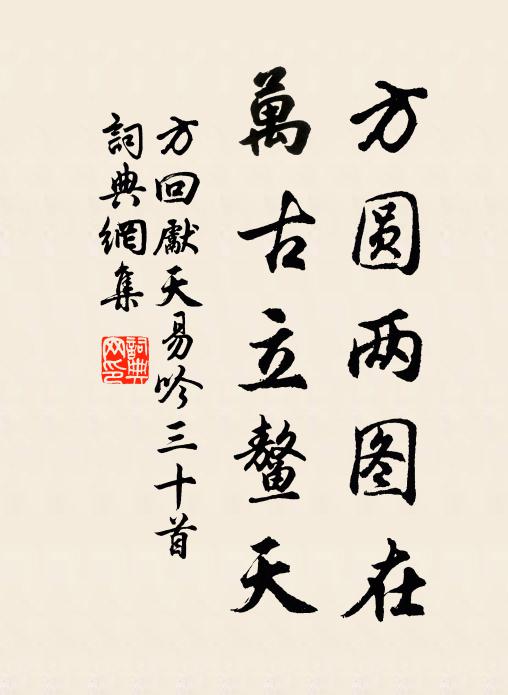 方圆两图在
萬古立鳌天
方回獻天易吟三十首
詞典網集
詞典網印